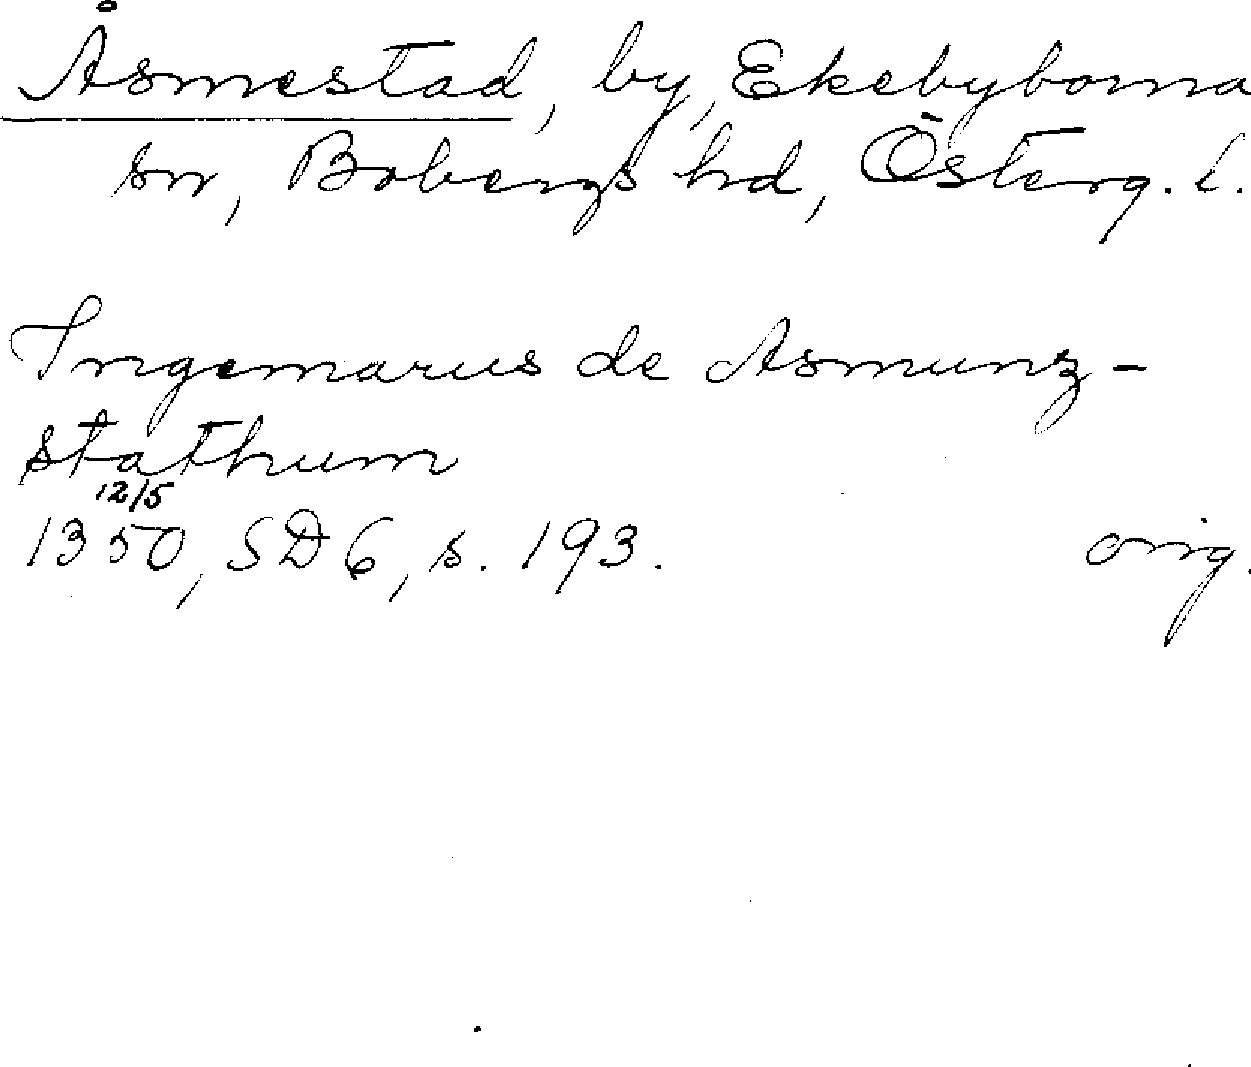 Åsmestad, by, Ekebyborna
sn, Bobergs hd, Österg. l.
Ingemarus de Asmunz-
stathum
12/5
1350, SD 6, s. 193. orig.